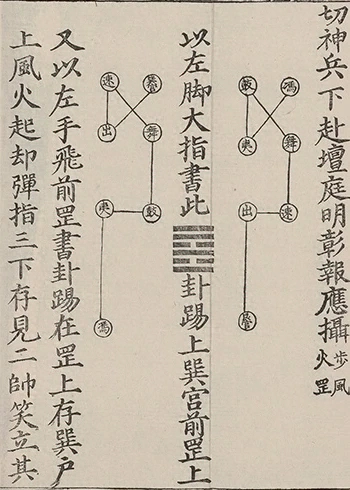 切神兵下赴壇庭明彰報應攝
步風
火罡
馮
夷
皷
舞
速
出
以左脚大指書此
卦踢上巽宮前罡上
出
速
舞
皷
夷
馮
又以左手飛前罡書卦踢在罡上存巽户
上風火起却彈指三下存見二帥笑立其